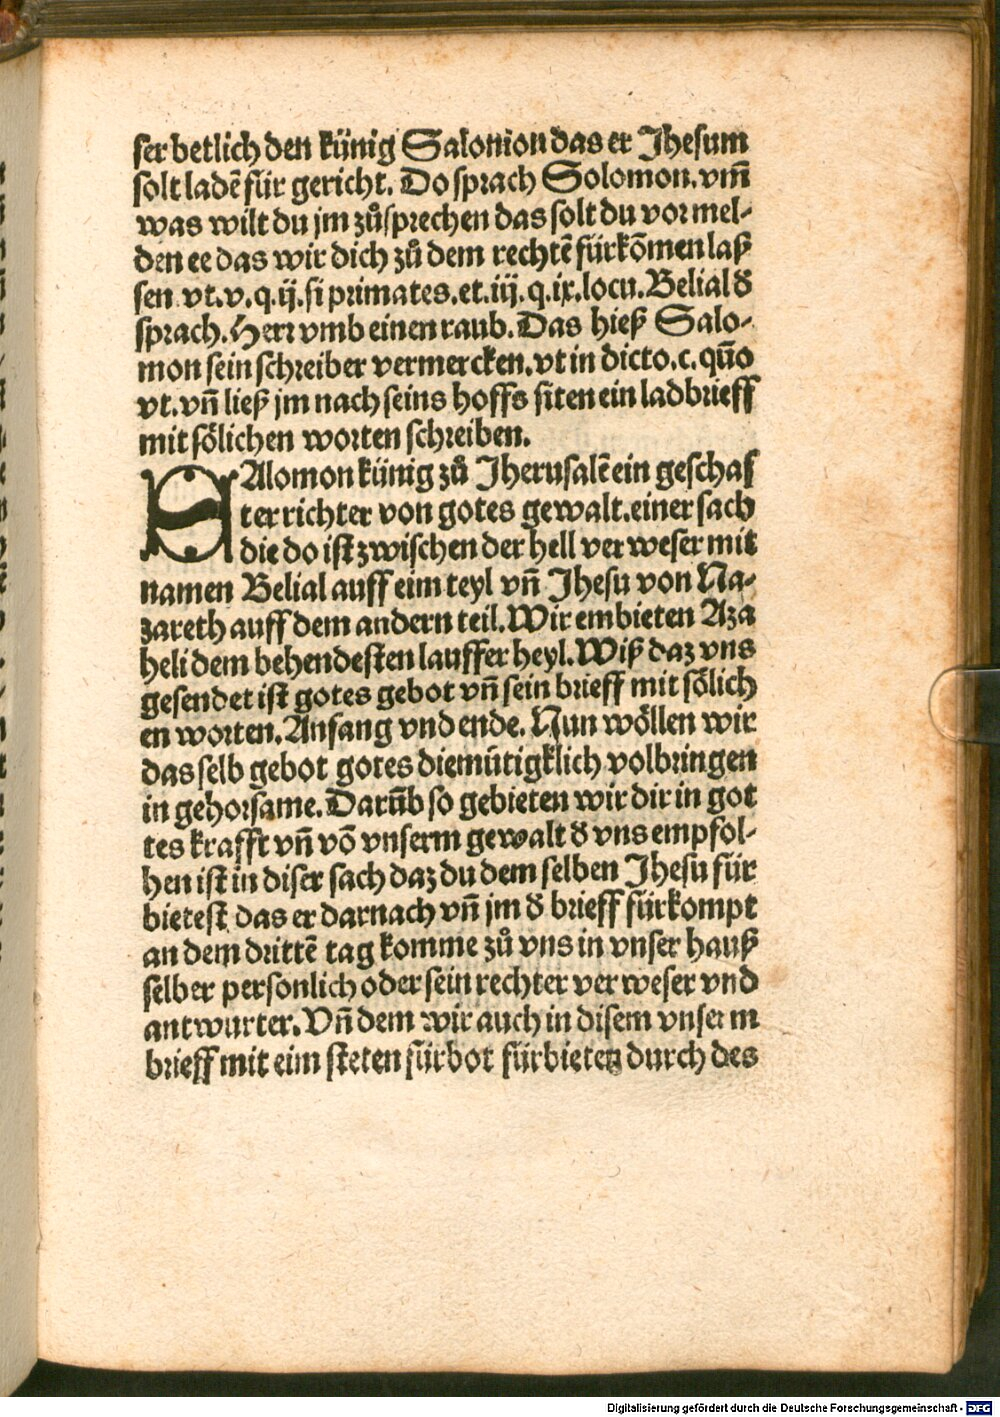 ser betlich den künig Salomon das er Jhesum
solt ladē für gericht. Do sprach Solomon. vm̄
was wilt du jm zůsprechen das solt du vor mel-
den ee das wir dich zů dem rechtē fürkōmen laß
sen. vt. v. q. ij. si primates. et. iij. q. ix. locu. Belial đ
sprach. Herr vmb einen raub. Das hieß Salo-
mon sein schreiber vermercken. vt in dicto. c. qūo
vt. vn̄ ließ jm nach seins hoffs siten ein ladbrieff
mit sölichen worten schreiben.
SAlomon künig zů Jherusalē ein geschaf
ter richter von gotes gewalt. einer sach
die do ist zwischen der hell verweser mit
namen Belial auff eim teyl vn̄ Jhesu von Na-
zareth auff dem andern teil. Wir embieten Aza
heli dem behendesten lauffer heyl. Wiß daz vns
gesendet ist gotes gebot vn̄ sein brieff mit sölich
en worten. Anfang vnd ende. Nun wöllen wir
das selb gebot gotes diemütigklich volbringen
in gehorsame. Darūb so gebieten wir dir in got
tes krafft vn̄ vō vnserm gewalt đ vns empfol-
hen ist in diser sach daz du dem selben Jhesu für
bietest das er darnach vn̄ jm đ brieff fürkompt
an dem drittē tag komme zů vns in vnser hauß
selber personlich oder sein rechter verweser vnd
antwurter. Vn̄ dem wir auch in disem vnserm
brieff mit eim steten fürbot fürbieten durch des
Digitalisierung gefördert durch die Deutsche Forschungsgemeinschaft - DFG